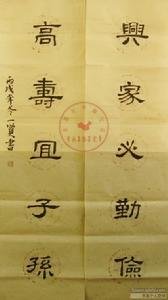 興家必勤儉
高壽宜子孫
丙戌年冬一賢書